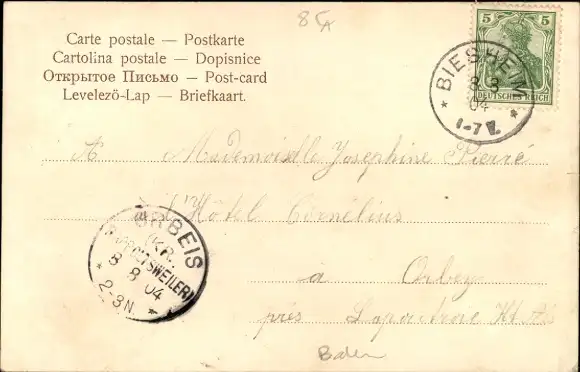 8
Carte postale — Postkarte
Cartolina postale — Dopisnice
Открытое Письмо — Post-card
Levelező-Lap — Briefkaart.
5 5
DEUTSCHES REICH
* BIESHEIM *
8 8
04
1-7 V.
A Mademoiselle Josephine Pierré
l'Hôtel Cornélius
à Orbey
près Lapoutroie Ht
URBEIS
(KR.
RAPPOLTSWEILER)
8 8 04
* 2-3N. *
Baden